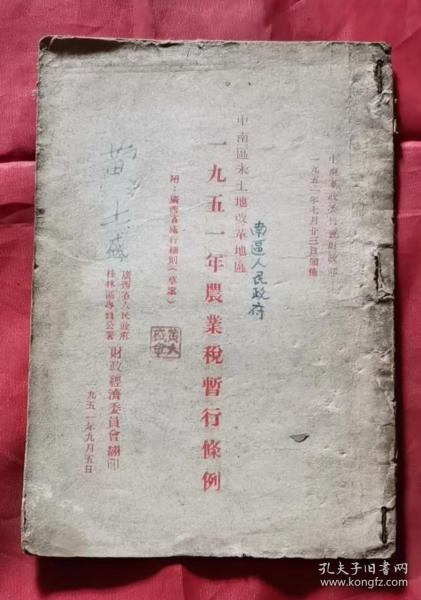 一九五一年七月廿三日頒佈
中南區未土地改革地區
南區人民政府
一九五一年農業稅暫行條例
附：廣西省施行細則（草案）
黄土盛
廣西省人民政府
桂林區專員公署
財政經濟委員會翻印
一九五一年九月五日
孔夫子旧书网
www.kongfz.com